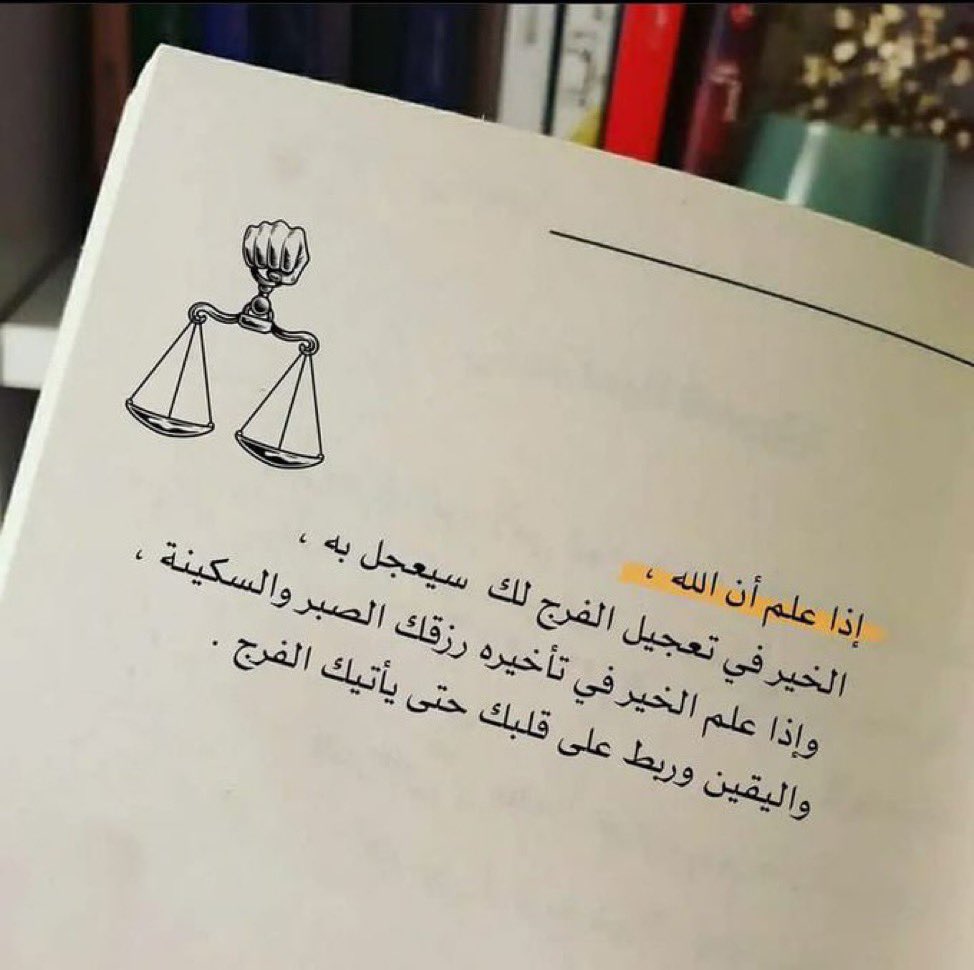 إذا علم أن الله ،
الخير في تعجيل الفرج لك سيعجل به ،
وإذا علم الخير في تأخيره رزقك الصبر والسكينة ،
واليقين وربط على قلبك حتى يأتيك الفرج .